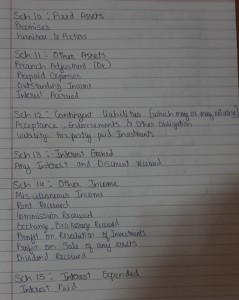 Sch 10 : Fixed Assets
Premises
Furniture & Fixtures
Sch 11 : Other Assets
Branch Adjustment (Dr.)
Prepaid Expenses
Outstanding Income
Interest Accrued
Sch 12 : Contingent Liabilities (which may or may not arise)
Acceptance, Endorsements & Other Obligation
Liability for partly paid Investments
Sch 13 : Interest Earned
Any Interest and Discount received
Sch 14 : Other Income
Miscellaneous Income
Rent Received
Commission Received
Exchange, Brokerage Received
Profit on Revaluation of Investments
Profit on Sale of any assets
Dividend Received
Sch 15 : Interest Expended
Interest Paid